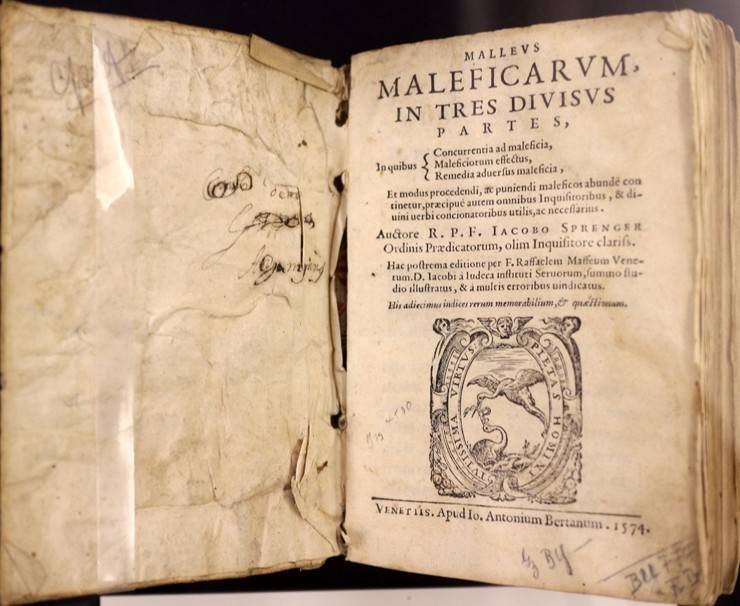 MALLEVS
MALEFICARVM,
IN TRES DIVISVS
PARTES,
In quibus { Concurrentia ad maleficia,
Maleficiorum effectus,
Remedia aduersus maleficia,
Et modus procedendi, ac puniendi maleficos abundè con
tinetur, præcipuè autem omnibus Inquisitoribus, & di-
uini uerbi concionatoribus utilis, ac necessarius.
Auctore R. P. F. IACOBO SPRENGER
Ordinis Prædicatorum, olim Inquisitore clariss.
Hac postrema editione per F. Raffaelem Maffeum Vene-
tum. D. Iacobi à Iudeca instituti Seruorum, summo stu-
dio illustratus, & à multis erroribus uindicatus.
His adiecimus indices rerum memorabilium, & quæstionum.
VIRTVS
PIETAS HOMINI
TVTISSIMA
VENETIIS. Apud Io. Antonium Bertanum. 1574.